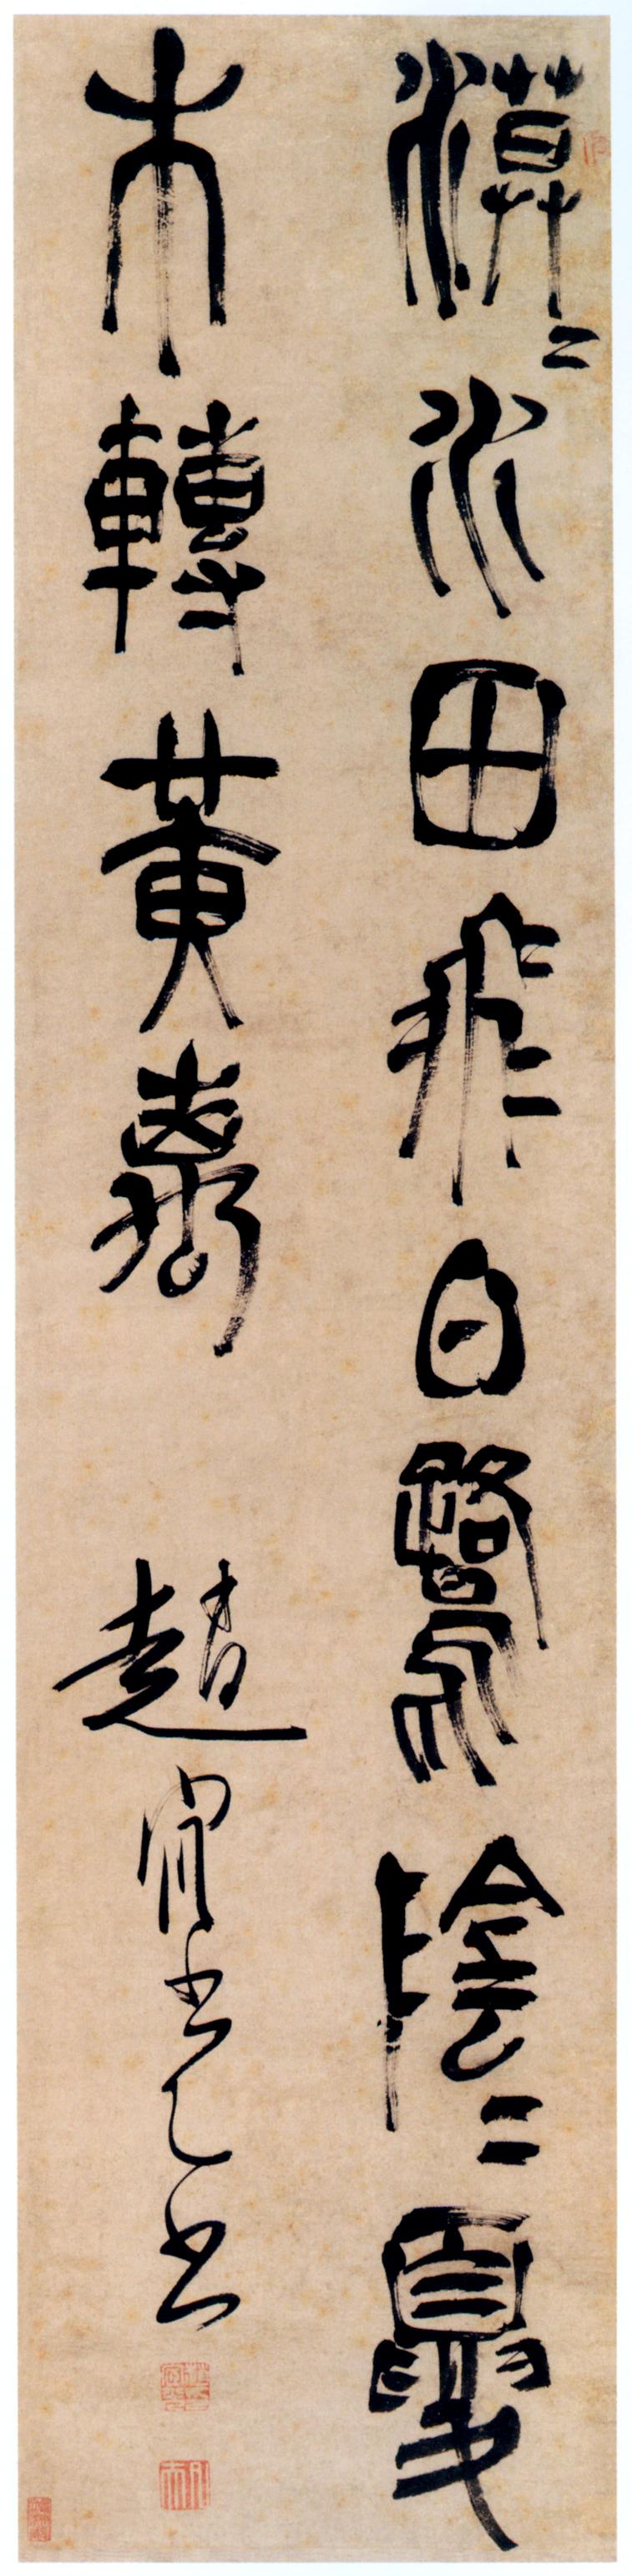 漠〻水田飛白鷺陰〻夏
木轉黃鸝 趙宧光書